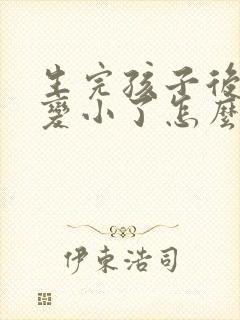 生完孩子後
變小了怎麼
伊東浩司